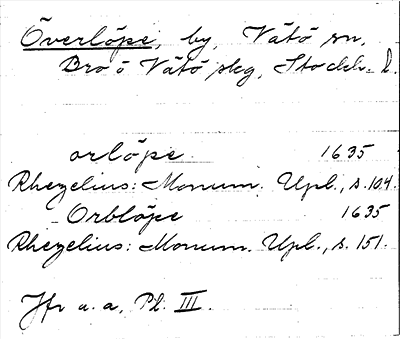 Överlöpe, by, Vätö sn,
Bro o Vätö skg, Stockh. l.
orlöpe 1635
Rhezelius: Monum. Upl., s. 104.
Orblöpe 1635
Rhezelius: Monum. Upl., s. 151.
Jfr u. a, Pl. III.